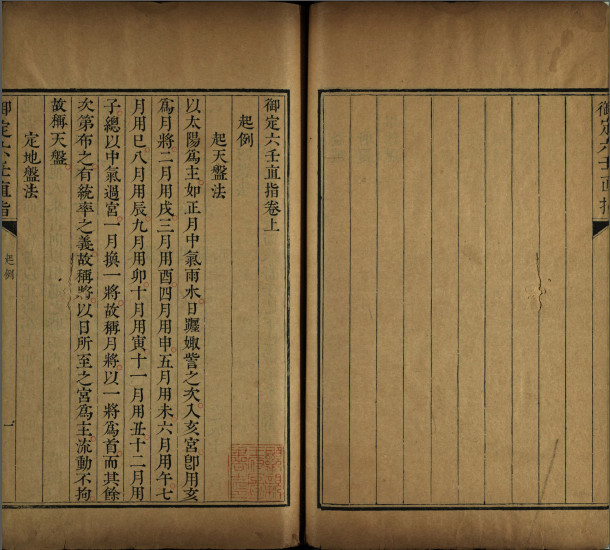 御定六壬直指
御定六壬直指卷上
起例
起天盤法
以太陽爲主如正月中氣雨水日躔娵訾之次入亥宮卽用亥
爲月將二月用戌三月用酉四月用申五月用未六月用午七
月用巳八月用辰九月用卯十月用寅十一月用丑十二月用
子總以中氣過宮一月換一將故稱月將以一將爲首而其餘
次第布之有統率之義故稱將以日所至之宮爲主流動不拘
故稱天盤
定地盤法
御定六壬直指
起例
一